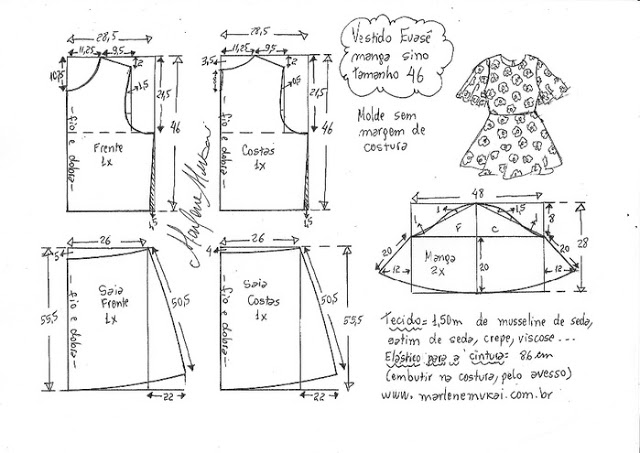 28,5
11,25 9,5
2
10,5
1,5
21,5
46
fio e dobra
Frente
1x
1,5
28,5
11,25 9,5
3,5
2
21,5
46
fio e dobra
Costas
1x
1,5
Marlene Mukai
Vestido Evasê
manga sino
tamanho 46
Molde sem
margem de
costura
48
1
1,5
1
1
8
28
F C
20
20
12
12
Manga
2x
20
26
5
55,5
50,5
fio e dobra
Saia
Frente
1x
22
26
4
50,5
55,5
fio e dobra
Saia
Costas
1x
22
Tecido= 1,50m de musseline de seda,
cetim de seda, crepe, viscose...
Elástico para a cintura= 86 cm
(embutir na costura, pelo avesso)
www.marlenemukai.com.br